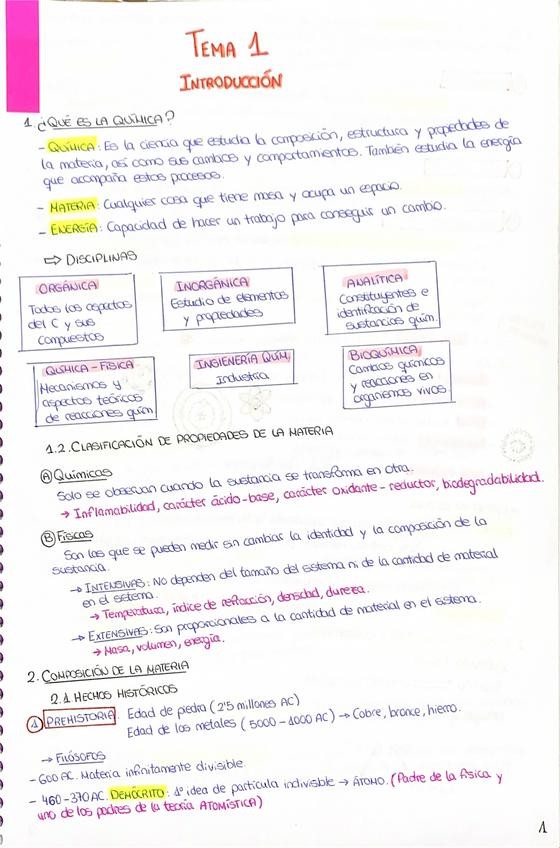 TEMA 1
INTRODUCCIÓN
1. ¿QUÉ ES LA QUÍMICA?
- QUÍMICA: Es la ciencia que estudia la composición, estructura y propiedades de
la materia, así como sus cambios y comportamientos. También estudia la energía
que acompaña estos procesos.
- MATERIA: Cualquier cosa que tiene masa y ocupa un espacio.
- ENERGÍA: Capacidad de hacer un trabajo para conseguir un cambio.
⇨ DISCIPLINAS
ORGÁNICA
Todos los aspectos
del C y sus
compuestos
INORGÁNICA
Estudio de elementos
y propiedades
ANALÍTICA
Constituyentes e
identificación de
sustancias quím.
QUÍMICA-FÍSICA
Mecanismos y
aspectos teóricos
de reacciones quím
INGIENERÍA QUÍM.
Industria
BIOQUÍMICA
Cambios químicos
y reacciones en
organismos vivos.
1.2. CLASIFICACIÓN DE PROPIEDADES DE LA MATERIA
Ⓐ Químicas
Solo se observan cuando la sustancia se transforma en otra.
→ Inflamabilidad, carácter ácido-base, carácter oxidante-reductor, biodegradabilidad.
Ⓑ Físicas
Son las que se pueden medir sin cambiar la identidad y la composición de la
sustancia.
→ INTENSIVAS: No dependen del tamaño del sistema ni de la cantidad de material
en el sistema.
→ Temperatura, índice de refracción, densidad, dureza.
→ EXTENSIVAS: Son proporcionales a la cantidad de material en el sistema.
→ Masa, volumen, energía.
2. COMPOSICIÓN DE LA MATERIA
2.1 HECHOS HISTÓRICOS
① PREHISTORIA. Edad de piedra (2'5 millones AC)
Edad de los metales (5000-1000 AC) → Cobre, bronce, hierro.
→ FILÓSOFOS
- 600 AC. Materia infinitamente divisible.
- 460-370 AC. DEMÓCRITO: 1ª idea de partícula indivisible → ÁTOMO. (Padre de la física y
uno de los padres de la teoría ATOMÍSTICA)
1